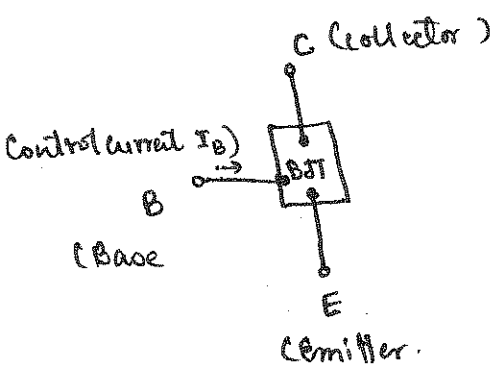 C (collector )
Control current IB)
BJT
B
(Base
E
(Emitter.